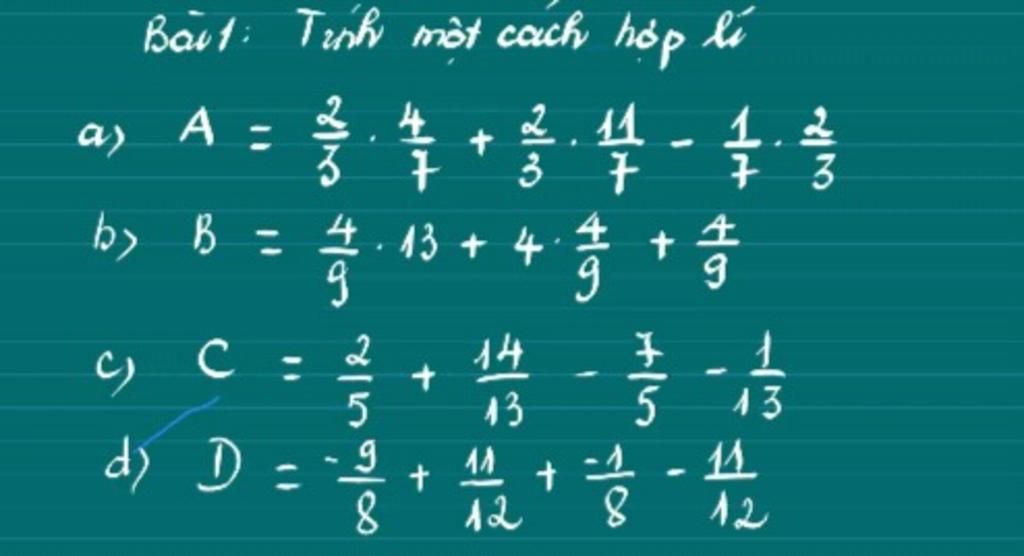 Bài 1: Tính một cách hợp lí
a) A = 2/3 . 4/7 + 2/3 . 11/7 - 1/7 . 2/3
b) B = 4/9 . 13 + 4 . 4/9 + 4/9
c) C = 2/5 + 14/13 - 7/5 - 1/13
d) D = -9/8 + 11/12 + -1/8 - 11/12